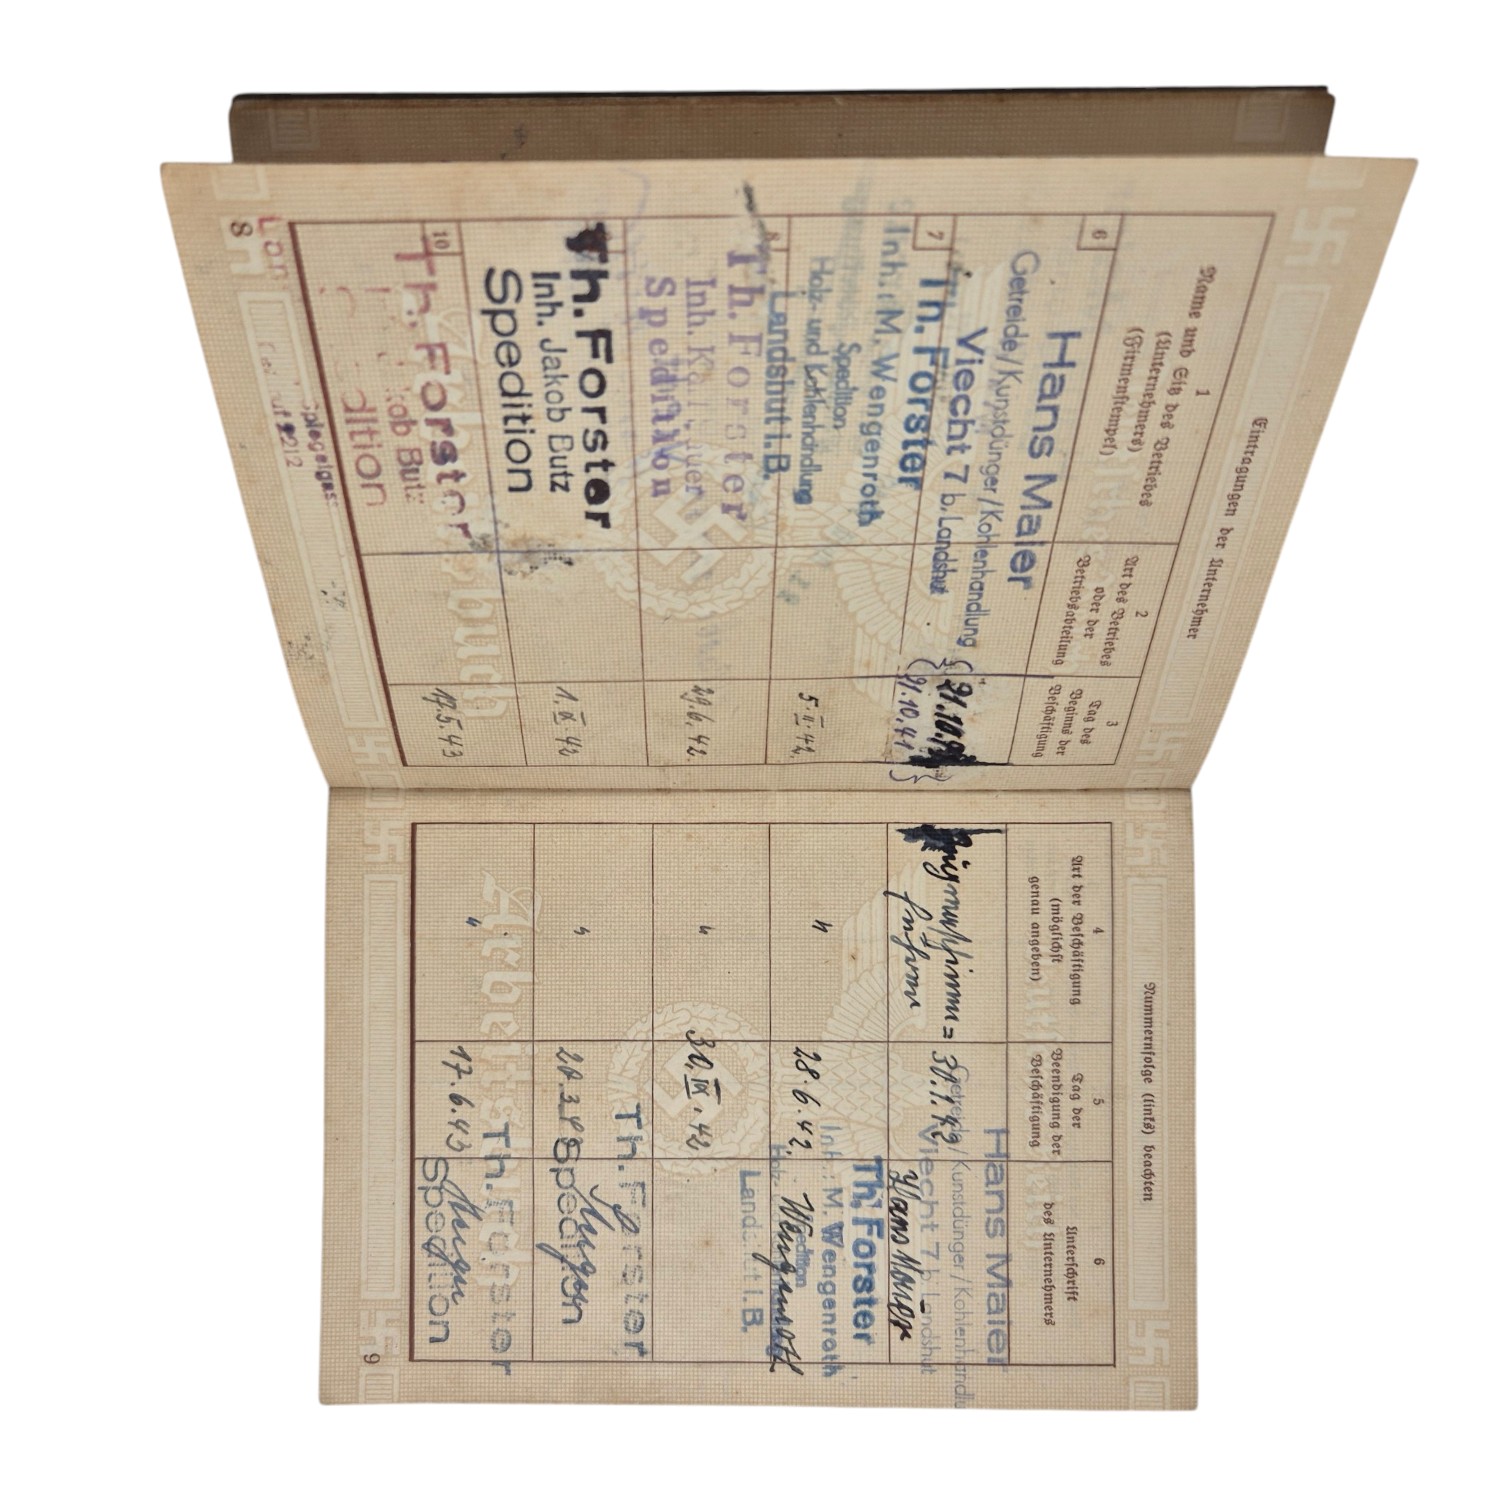 Eintragungen der Unternehmer
1
Name und Sitz des Betriebes
(Unternehmers)
(Firmenstempel)
2
Art des Betriebes
oder der
Betriebsabteilung
3
Tag des
Beginns der
Beschäftigung
6
Hans Maier
Getreide/Kunstdünger/Kohlenhandlung
Viecht 7 b. Landshut
21.10.41
(21.10.41.)
7
Th. Forster
Inh.: M. Wengenroth
Spedition
Holz- und Kohlenhandlung
Landshut i. B.
5.II.42.
8
Th. Forster
Inh.
Spedition
29.6.42.
Th. Forster
Inh. Jakob Butz
Spedition
1.IX.42
10
Th. Forster
Jakob Butz
Spedition
19.5.43
8
Nummernfolge (links) beachten
4
Art der Beschäftigung
(möglichst
genau angeben)
5
Tag der
Beendigung der
Beschäftigung
6
Unterschrift
des Unternehmers
führer
30.1.42
Hans Maier
Getreide/Kunstdünger/Kohlenhandlu
Viecht 7 b. Landshut
Hans Maier
"
28.6.42.
Th. Forster
Inh.: M. Wengenroth
Spedition
Landshut i. B.
Wengenroth
"
30.IX.42
"
Th. Forster
Spedition
"
17.6.43
Th. Forster
Spedition
9
Arbeitsbuch